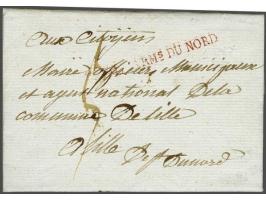 Aux Citoyens
ARMÉE DU NORD
Maire officiers Municipaux
et agent national De la
commune De Lille
A Lille
Dept Du nord